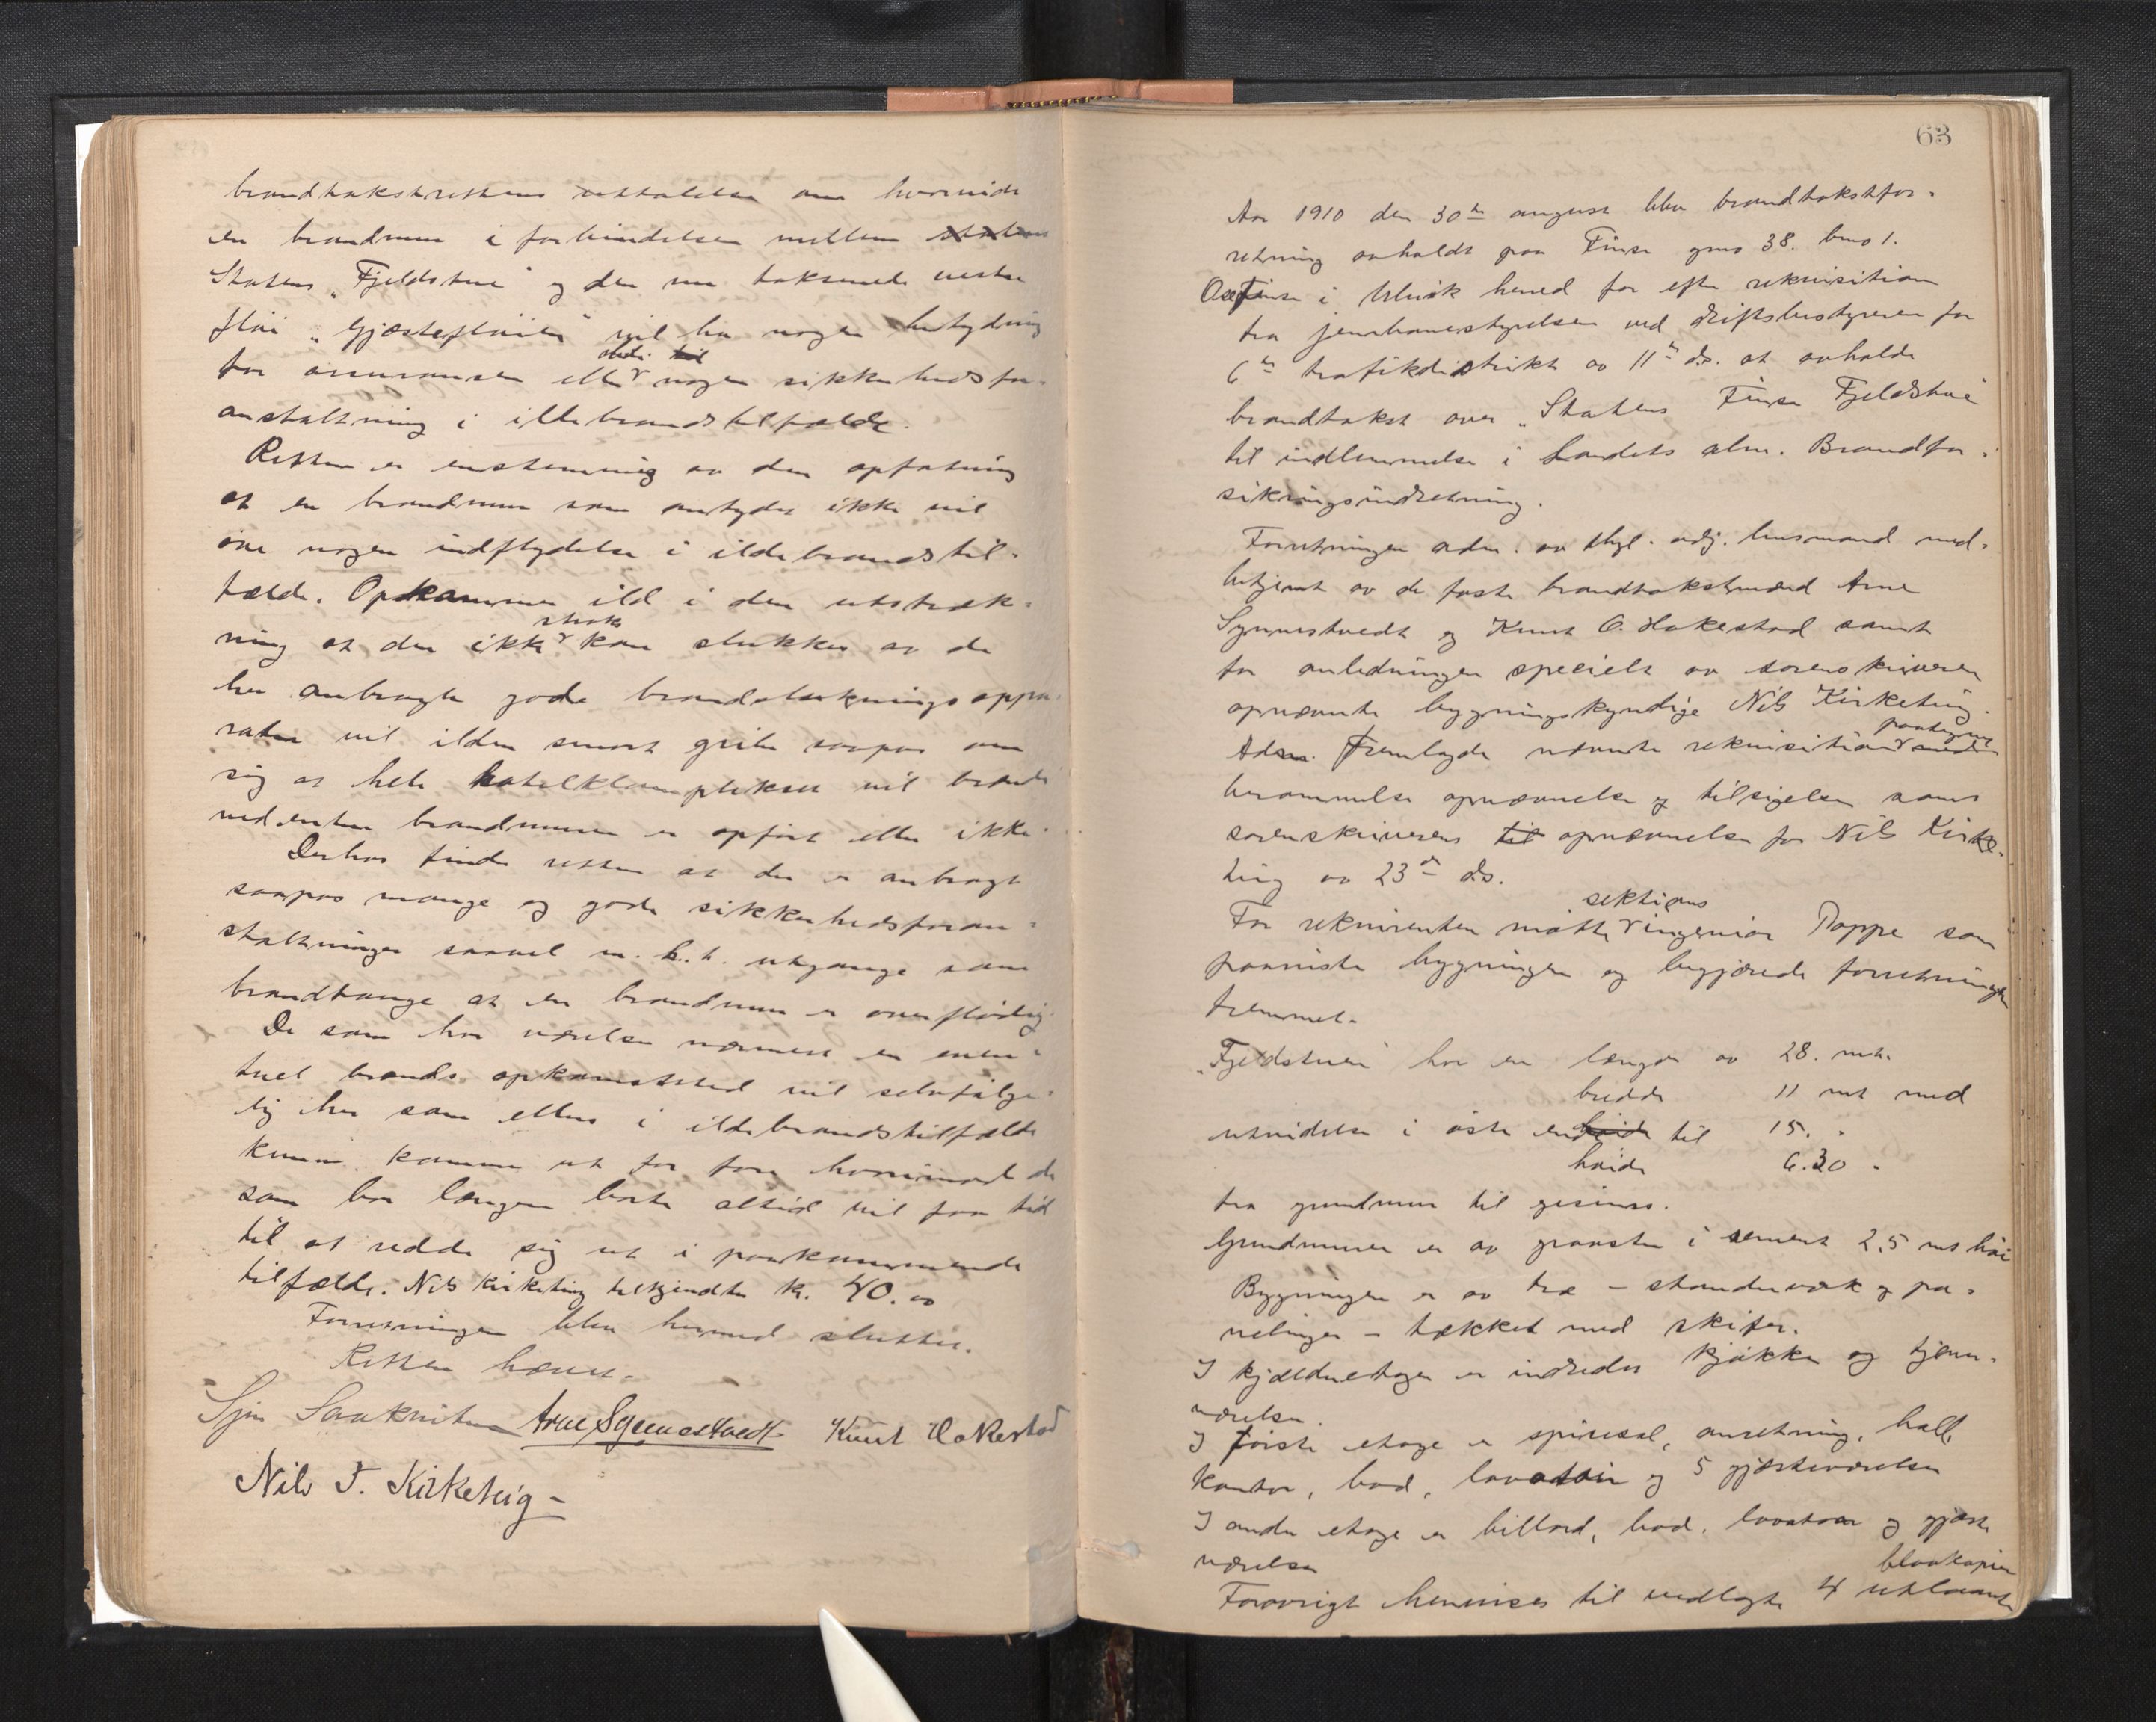 brandtakstrettens uttalelse om hvorvidt
en brandmur i forbindelsen mellem staten
Statens „Fjeldstue" og den nu takserede vestre
fløi „Gjæstefløien" vil ha nogen betydning
for assuransen eller nogen sikkerhedsfor-
anstaltning i ildebrandstilfælde.
Retten er enstemmig av den opfatning
at en brandmur som antydet ikke vil
øve nogen indflydelse i ildebrandstil-
fælde. Opkommer ild i den utstræk-
ning at den ikke straks kan slukkes av de
her anbragte gode brandslukningsappa-
rater vil ilden snart gribe saapas om
sig at hele hotelkomplekset vil brænde
ned enten brandmuren er opført eller ikke.
Derhos finder retten at der er anbragt
saapas mange og gode sikkerhedsforan-
staltninger saavel m. h. t. utgange som
brandtauge at en brandmur er overflødig.
De som har værelse nærmest en even-
tuel brands opkomststed vil selvfølge-
lig her som ellers i ildebrandstilfælde
kunne komme ut for fare hvorimot de
som bor længere borte altid vil faa tid
til at redde sig ut i paakommende
tilfælde. Nils Kirketeig tilkjendtes kr. 40.00
Forretningen blev hermed sluttet.
Retten hævet.
Arne Synnestvedt Knut Hakestad
Nils T. Kirketeig
63
Aar 1910 den 30te august blev brandtakstfor-
retning avholdt paa Finse gno 38. bno 1.
i Ulvik herred for efter rekvisition
fra jernbanestyrelsen ved driftsbestyreren for
6te trafikdistrikt av 11te ds. at avholde
brandtakst over „Statens Finse Fjeldstue
til indlemmelse i Landets alm. Brandfor-
sikringsindretning.
Forretningen adm. av lensmand med-
betjent av de faste brandtakstmænd Arne
Synnestvedt og Knut O. Hakestad samt
for anledningen specielt av sorenskriveren
opnævnte bygningskyndige Nils Kirketeig.
Adm. fremlagde nævnte rekvisition paategnet med
berammelse opnævnelse og tilsigelse samt
sorenskriverens til opnævnelse for Nils Kirke-
teig av 23de ds.
For rekvirenten møtte sektionsingeniør Poppe som
paaviste bygningen og begjærede forretningen
fremmet.
„Fjeldstuen" har en længde av 28. mtr.
bredde 11 mt med
utvidelse i østre ende til 15. "
høide 6.30 "
fra grundmur til gesims.
Grundmuren er av graasten i sement 2,5 mt høi
Bygningen er av træ – standerværk og pa-
nelinger – tækket med skifer.
I kjælderetagen er indredet kjøkken og tjener-
værelser.
I første etage er spisesal, anretning, hall,
kontor, bad, lavatoir og 5 gjesteværelser
I anden etage er billard, bad, lavatoir og gjæste
værelser
Forøvrigt henvises til vedlagte 4 utlaante blaakopier